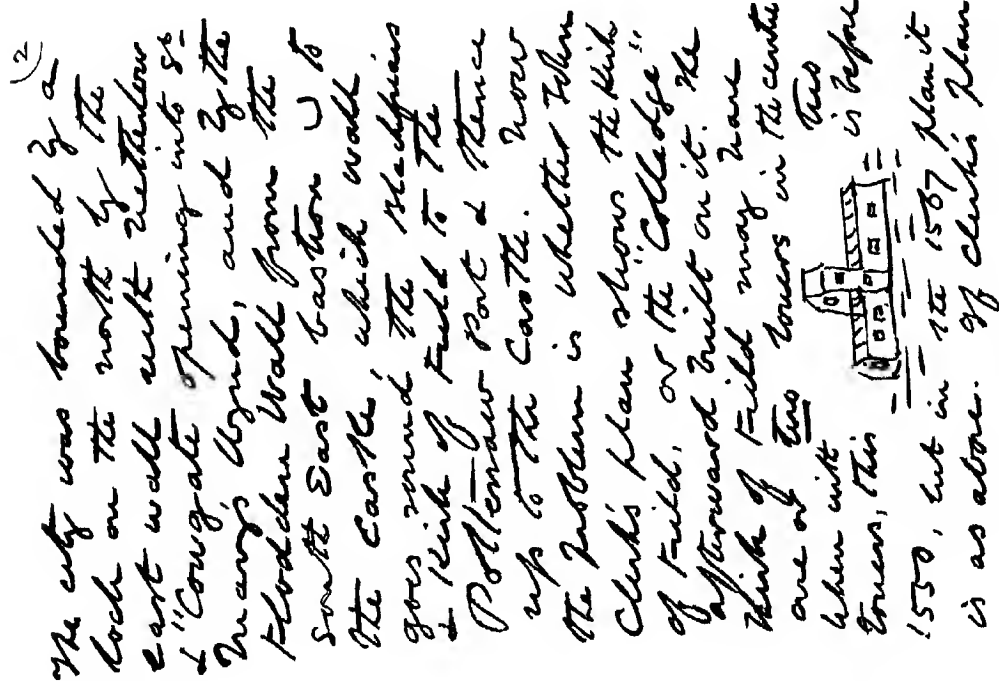 (2
The city was bounded by a
loch on the north by the
east wall with Netherbow
& "Cowgate opening into St
Mary's Wynd, and by the
Flodden Wall from the
South East bastion to
the castle, which wall
goes round the Blackfriars
& Kirk of Field to the
Potterrow Port & thence
up to the Castle. Now
the problem is whether when
Clerk's plan shows the Kirk
of Field, or the "Colledge"
afterward built on it. The
Kirk of Field may have
one or two towers in the centre
when with two
towers, this is before
1550, but in the 1567 plan it
is as above. If Clerk's plan